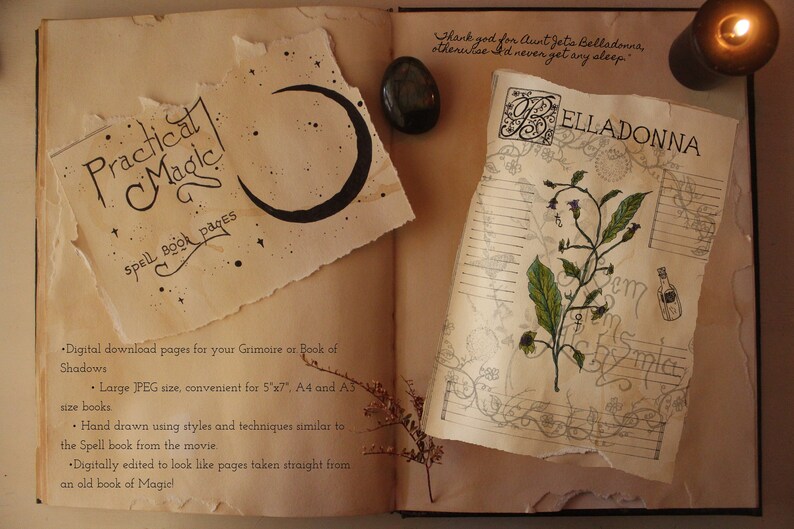 Practical
Magic
SPELL BOOK PAGES
•Digital download pages for your Grimoire or Book of
Shadows
• Large JPEG size, convenient for 5"x7", A4 and A3
size books.
• Hand drawn using styles and techniques similar to
the Spell book from the movie.
•Digitally edited to look like pages taken straight from
an old book of Magic!
"Thank god for Aunt Jet's Belladonna,
otherwise I'd never get any sleep."
BELLADONNA